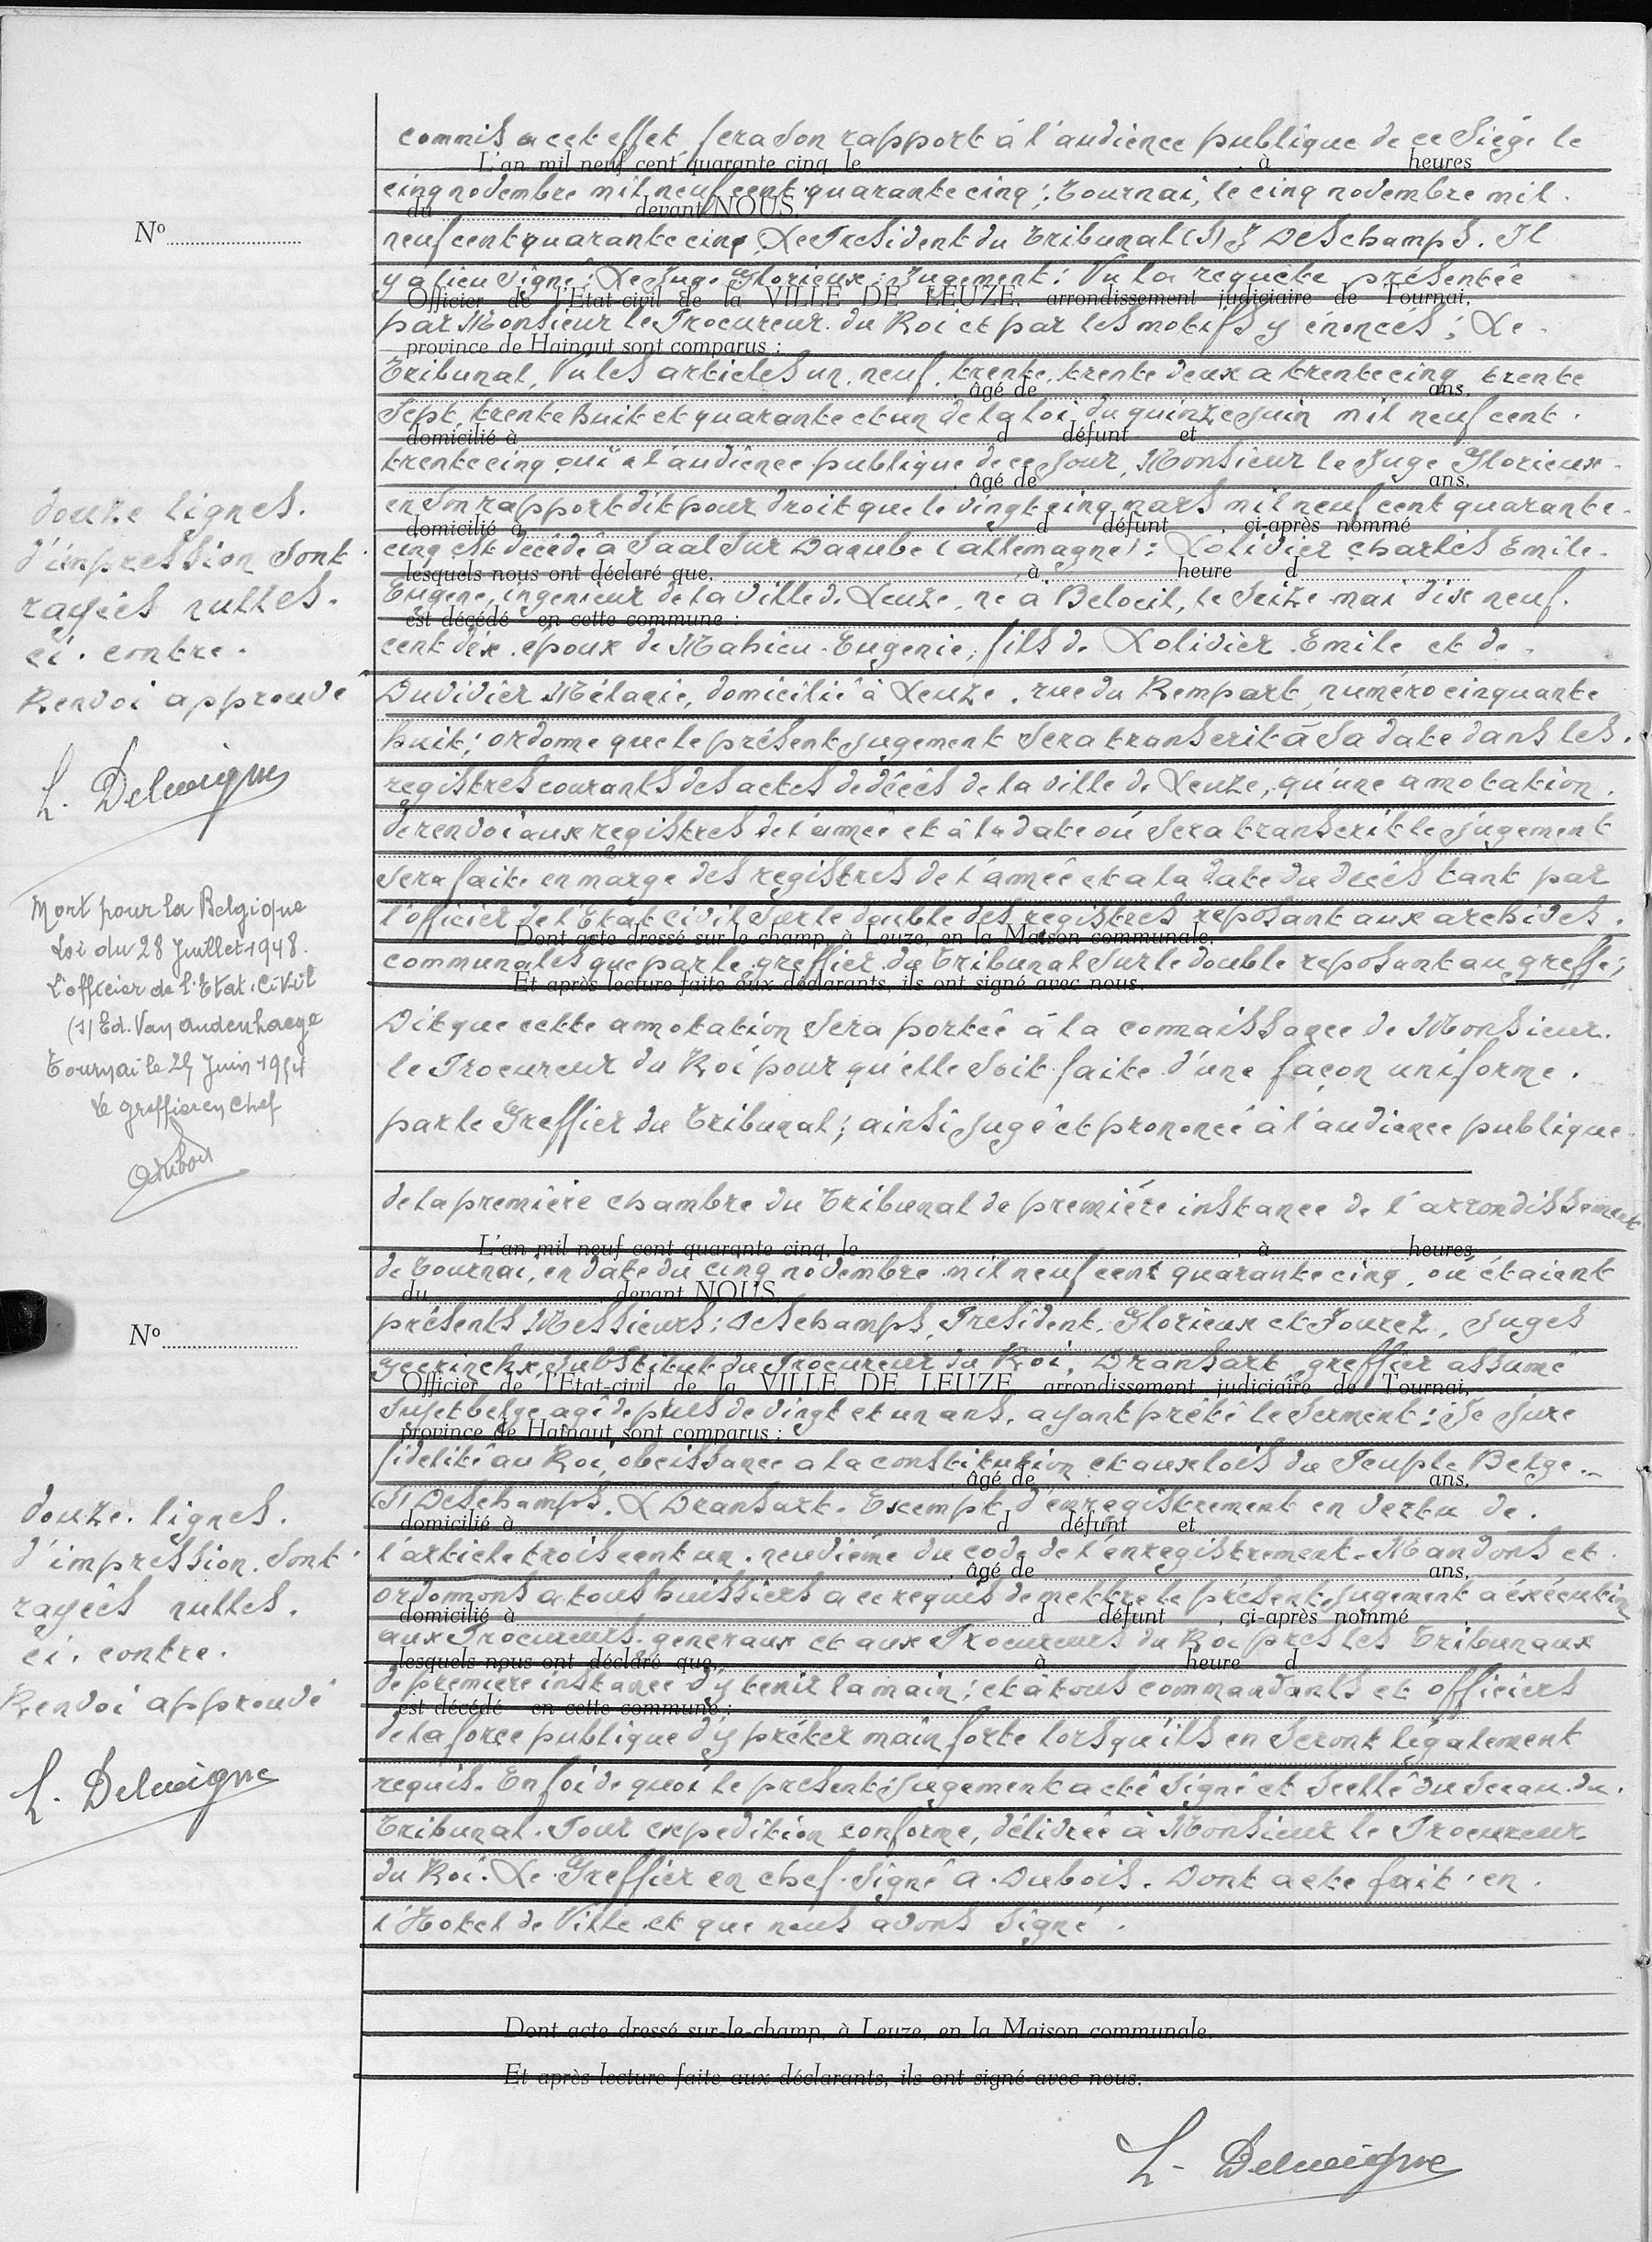 commis a cet effet fera son rapport à l'audience publique de ce Siége le
L'an mil neuf cent quarante cinq, le à heures
cinq novembre mil neuf cent quarante cinq; Tournai, le cinq novembre mil
du devant NOUS
N°
neuf cent quarante cinq. Le President du Tribunal (S) J Deschamps. Il
y a lieu signé: Le Juge Glorieux; Jugement: Vu la requête présentée
Officier de l'Etat-civil de la VILLE DE LEUZE, arrondissement judiciaire de Tournai,
par Monsieur le Procureur du Roi et par les motifs y énoncés; Le
province de Hainaut sont comparus :
Tribunal, Vu les articles un, neuf, trente, trente deux a trente cinq trente
âgé de ans,
sept, trente huit et quarante et un de la loi du quinze juin mil neuf cent
domicilié à d défunt et
trente cinq, oui à l'audience publique de ce jour, Monsieur le Juge Glorieux
âgé de ans,
en son rapport dit pour droit que le vingt cinq mars mil neuf cent quarante
domicilié à d défunt , ci-après nommé
cinq est décédé à Saal sur Danube (allemagne): Lolivier Charles Emile
lesquels nous ont déclaré que, à heure d
Eugene, ingenieur de la ville de Leuze, né à Beloeil, le seize mai dix neuf
est décédé en cette commune :
cent dix, époux de Mahieu Eugenie, fils de Lolivier Emile et de
Duvivier Mélanie, domicilié à Leuze, rue du Rempart, numéro cinquante
huit; ordonne que le présent jugement sera transcrit à sa date dans les
registres courants des actes de décès de la ville de Leuze, qu'une annotation
de renvoi aux registres de l'année et à la date où sera transcrit le jugement
sera faite en marge des registres de l'année et a la date du décès tant par
l'officier de l'Etat civil sur le double des registres reposant aux archives
Dont acte dressé sur-le-champ, à Leuze, en la Maison communale.
communales que par le greffier du Tribunal sur le double reposant au greffe;
Et après lecture faite aux déclarants, ils ont signé avec nous.
Dit que cette annotation sera portée à la connaissance de Monsieur
le Procureur du Roi pour qu'elle soit faite d'une façon uniforme
par le Greffier du Tribunal; ainsi jugé et prononcé à l'audience publique
douze lignes.
d'impression sont
rayées nulles.
ci. contre.
Renvoi approuvé
L. Delwigne
Mort pour la Belgique
Loi du 28 Juillet 1948.
L'officier de l'Etat-Civil
(s) Ed. Van Audenhaege
Tournai le Juin
Le greffier en chef
ADubois
de la première chambre du Tribunal de première instance de l'arrondissement
L'an mil neuf cent quarante cinq, le à heures
de Tournai, en date du cinq novembre mil neuf cent quarante cinq, où étaient
du devant NOUS
N°
présents Messieurs: Deschamps, President, Glorieux et Jouret, Juges
substitut du Procureur du Roi, Dransart, greffier assumé
Officier de l'Etat-civil de la VILLE DE LEUZE, arrondissement judiciaire de Tournai,
sujet belge agé de plus de vingt et un ans, ayant prêté le serment: Je jure
province de Hainaut sont comparus :
fidelité au Roi, obeissance a la constitution et aux lois du Peuple Belge
âgé de ans,
(S) Deschamps. L Dransart. Exempt d'enregistrement en vertu de
domicilié à d défunt et
l'article trois cent un, neuvième du code de l'enregistrement. Mandons et
âgé de ans,
ordonnons a tous huissiers a ce requis de mettre le présent jugement a éxécution
domicilié à d défunt , ci-après nommé
aux Procureurs generaux et aux Procureurs du Roi pres les Tribunaux
lesquels nous ont déclaré que, à heure d
de premiere instance d'y tenir la main; et à tous commandants et officiers
est décédé en cette commune :
de la force publique d'y préter main forte lorsqu'ils en seront légalement
requis. En foi de quoi le present jugement a été signé et scellé du sceau du
Tribunal. Pour expedition conforme, délivrée à Monsieur le Procureur
du Roi. Le Greffier en chef signé A. Dubois. Dont acte fait en
l'Hotel de Ville et que nous avons signé.
Dont acte dressé sur-le-champ, à Leuze, en la Maison communale.
Et après lecture faite aux déclarants, ils ont signé avec nous.
douze. lignes.
d'impression. sont
rayées nulles.
ci. contre.
Renvoi approuvé
L. Delwigne
L. Delwigne